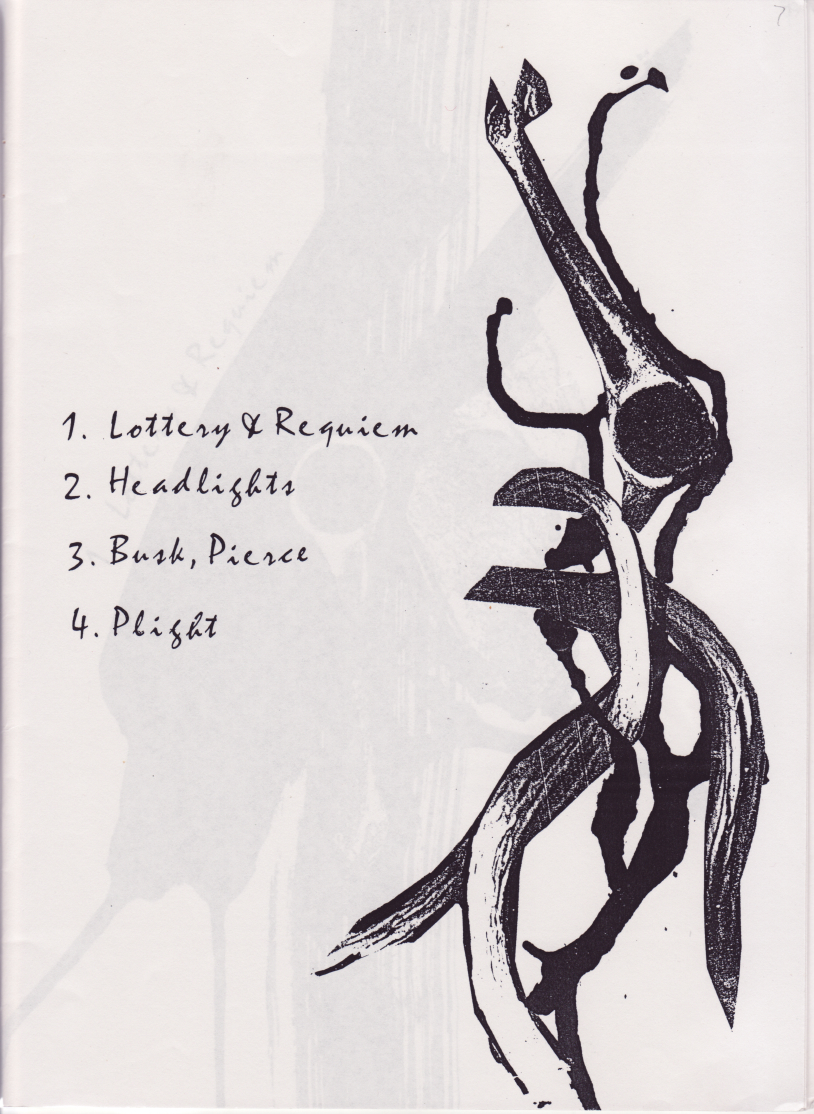 7
1. Lottery & Requiem
2. Headlights
3. Busk, Pierce
4. Plight